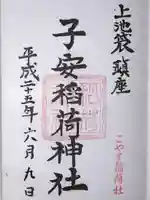 上池袋鎮座
子安稲荷神社
平成二十五年六月九日
こやす稲荷社